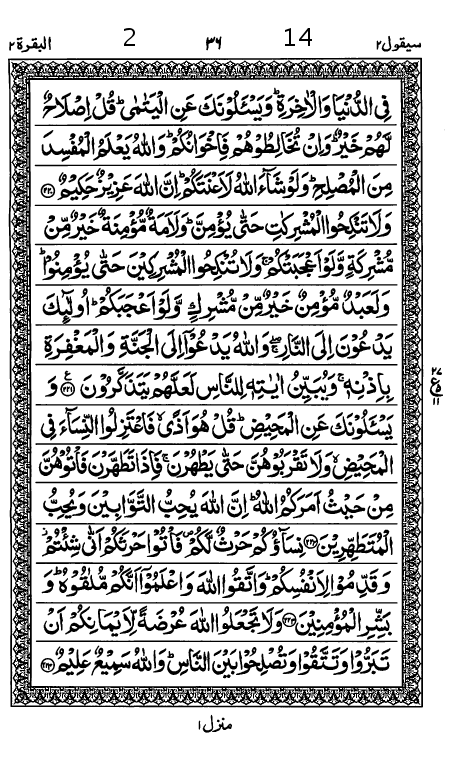 سیقول۲ 14 ۳۶ 2 البقرة۲
فِی الدُّنْیَا وَالْاٰخِرَةِ ؕ وَیَسْـَٔلُوْنَكَ عَنِ الْیَتٰمٰی ؕ قُلْ اِصْلَاحٌ
لَّهُمْ خَیْرٌ ؕ وَاِنْ تُخَالِطُوْهُمْ فَاِخْوَانُكُمْ ؕ وَاللّٰهُ یَعْلَمُ الْمُفْسِدَ
مِنَ الْمُصْلِحِ ؕ وَلَوْ شَآءَ اللّٰهُ لَاَعْنَتَكُمْ ؕ اِنَّ اللّٰهَ عَزِیْزٌ حَكِیْمٌ ﴿۲۲۰﴾
وَلَا تَنْكِحُوا الْمُشْرِكٰتِ حَتّٰی یُؤْمِنَّ ؕ وَلَاَمَةٌ مُّؤْمِنَةٌ خَیْرٌ مِّنْ
مُّشْرِكَةٍ وَّلَوْ اَعْجَبَتْكُمْ ۚ وَلَا تُنْكِحُوا الْمُشْرِكِیْنَ حَتّٰی یُؤْمِنُوْا ؕ
وَلَعَبْدٌ مُّؤْمِنٌ خَیْرٌ مِّنْ مُّشْرِكٍ وَّلَوْ اَعْجَبَكُمْ ؕ اُولٰٓئِكَ
یَدْعُوْنَ اِلَی النَّارِ ۖۚ وَاللّٰهُ یَدْعُوْۤا اِلَی الْجَنَّةِ وَالْمَغْفِرَةِ
بِاِذْنِهٖ ۚ وَیُبَیِّنُ اٰیٰتِهٖ لِلنَّاسِ لَعَلَّهُمْ یَتَذَكَّرُوْنَ ﴿۲۲۱﴾ وَ
۲۷ ع ۱۱
یَسْـَٔلُوْنَكَ عَنِ الْمَحِیْضِ ؕ قُلْ هُوَ اَذًی ۙ فَاعْتَزِلُوا النِّسَآءَ فِی
الْمَحِیْضِ ۙ وَلَا تَقْرَبُوْهُنَّ حَتّٰی یَطْهُرْنَ ۚ فَاِذَا تَطَهَّرْنَ فَاْتُوْهُنَّ
مِنْ حَیْثُ اَمَرَكُمُ اللّٰهُ ؕ اِنَّ اللّٰهَ یُحِبُّ التَّوَّابِیْنَ وَیُحِبُّ
الْمُتَطَهِّرِیْنَ ﴿۲۲۲﴾ نِسَآؤُكُمْ حَرْثٌ لَّكُمْ ۪ فَاْتُوْا حَرْثَكُمْ اَنّٰی شِئْتُمْ ۫
وَقَدِّمُوْا لِاَنْفُسِكُمْ ؕ وَاتَّقُوا اللّٰهَ وَاعْلَمُوْۤا اَنَّكُمْ مُّلٰقُوْهُ ؕ وَ
بَشِّرِ الْمُؤْمِنِیْنَ ﴿۲۲۳﴾ وَلَا تَجْعَلُوا اللّٰهَ عُرْضَةً لِّاَیْمَانِكُمْ اَنْ
تَبَرُّوْا وَتَتَّقُوْا وَتُصْلِحُوْا بَیْنَ النَّاسِ ؕ وَاللّٰهُ سَمِیْعٌ عَلِیْمٌ ﴿۲۲۴﴾
منزل۱